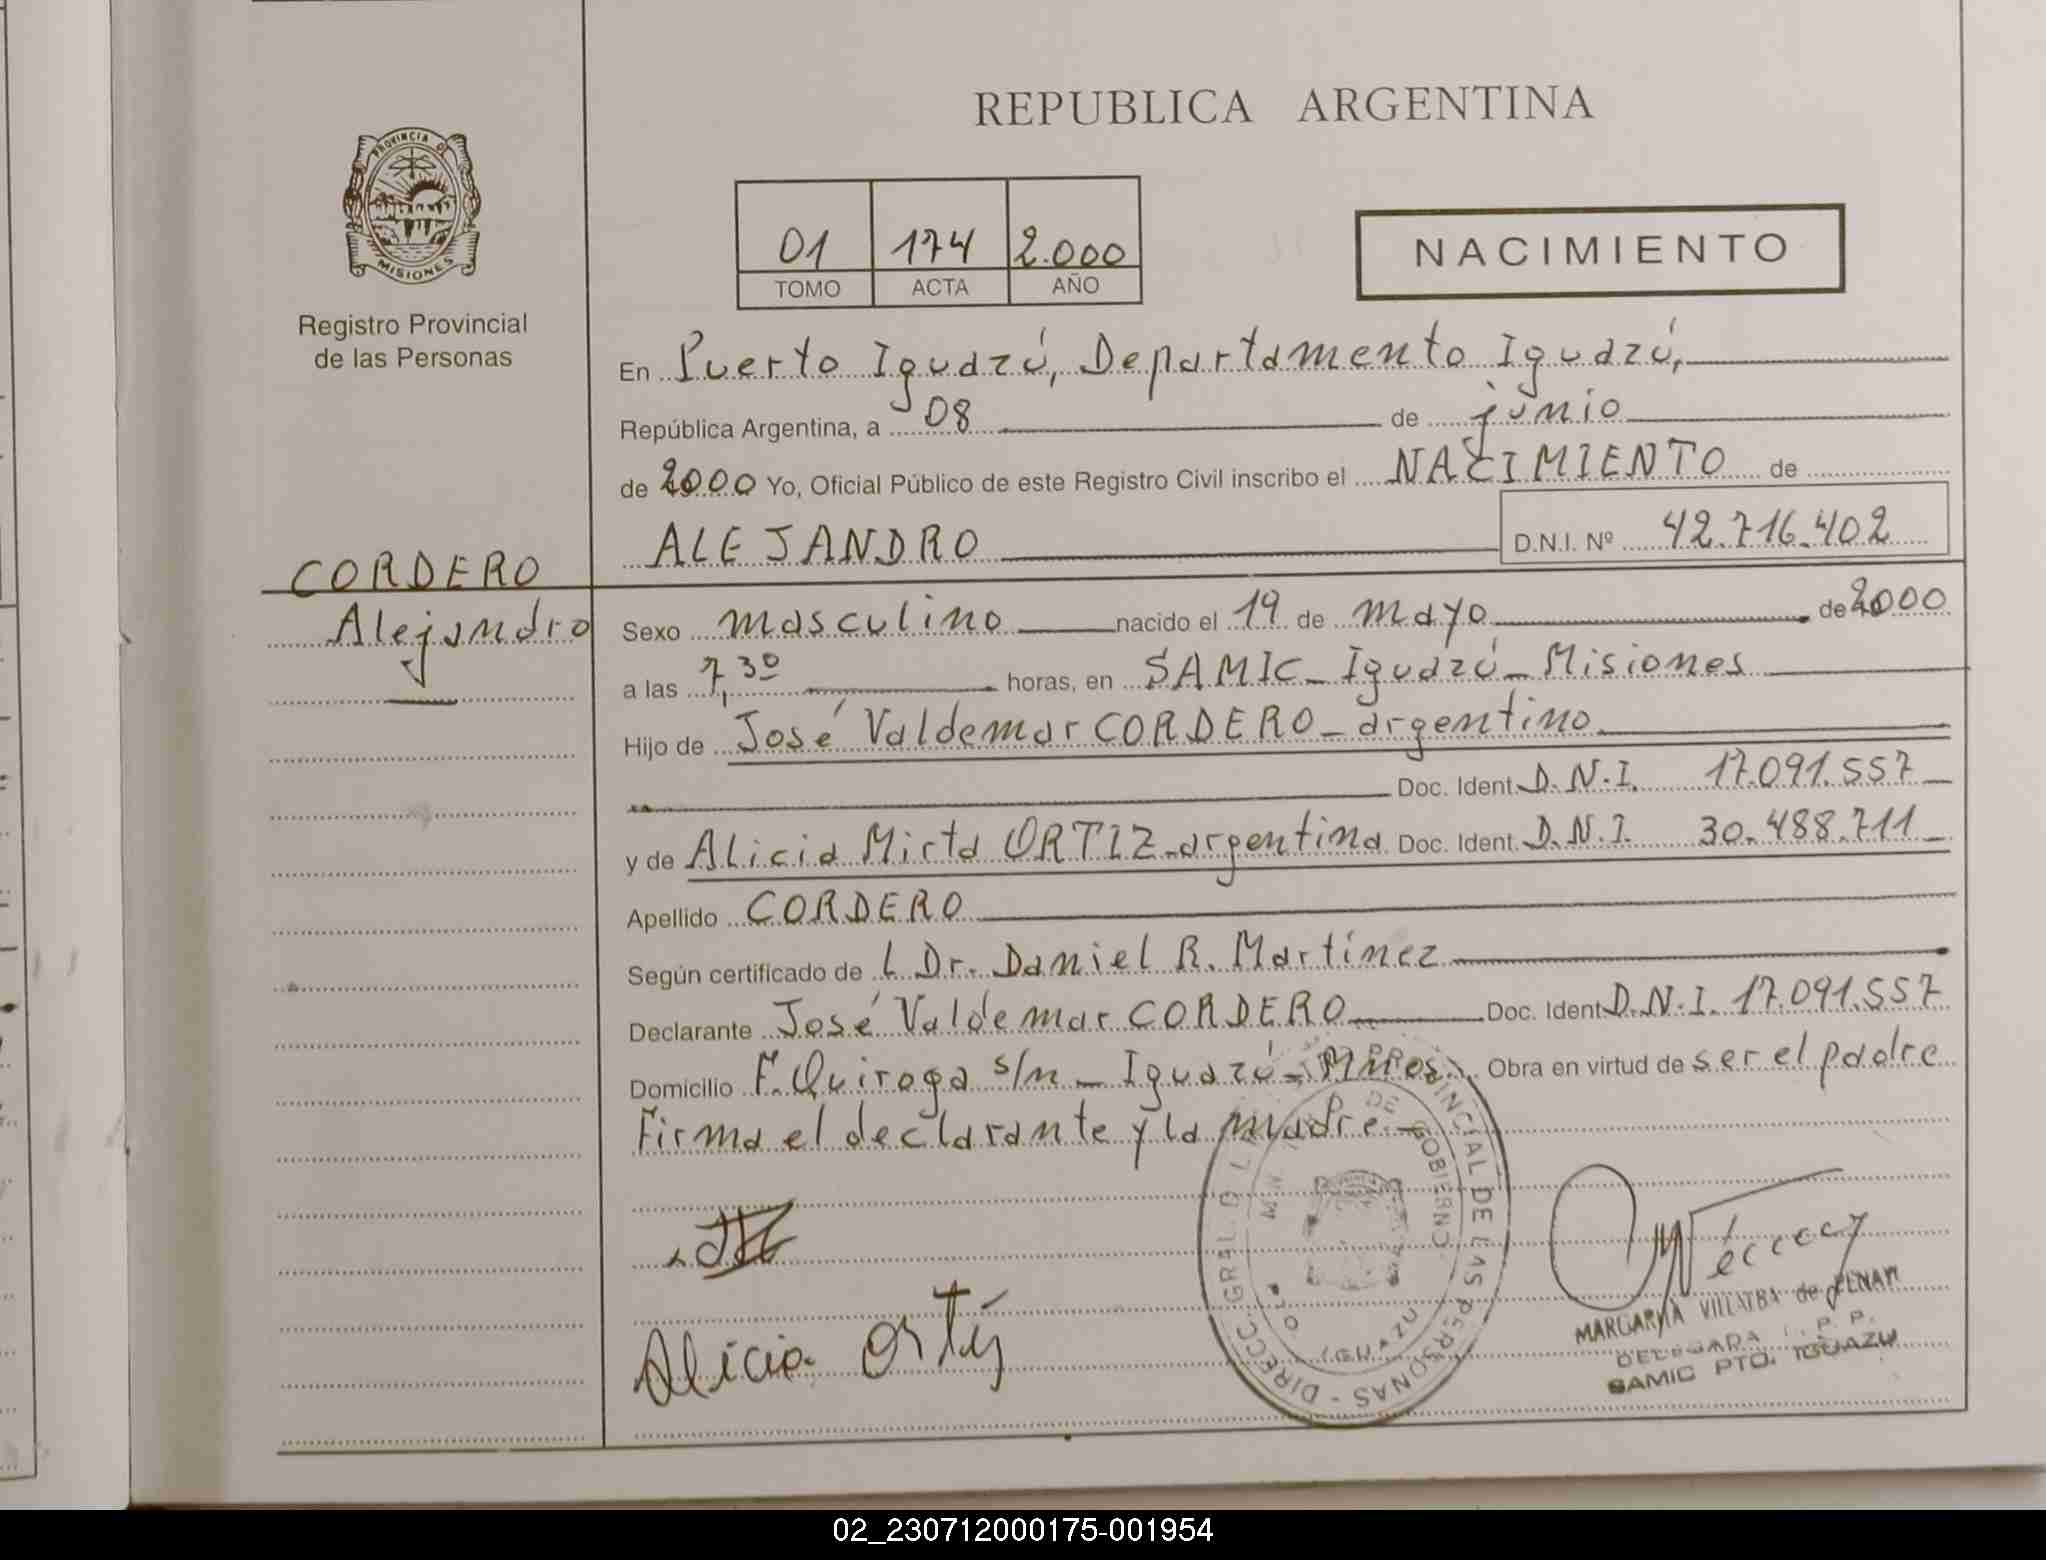 REPUBLICA ARGENTINA
PROVINCIA DE
MISIONES
Registro Provincial
de las Personas
01 174 2.000
TOMO ACTA AÑO
NACIMIENTO
En Puerto Iguazú, Departamento Iguazú,
República Argentina, a 08 de junio
de 2000 Yo, Oficial Público de este Registro Civil inscribo el NACIMIENTO de
ALEJANDRO D.N.I. Nº 42.716.402
CORDERO
Alejandro
Sexo masculino nacido el 19 de mayo de 2000
a las 7,30 horas, en SAMIC_Iguazú_Misiones
Hijo de José Valdemar CORDERO_argentino
Doc. Ident. D.N.I. 17.091.557
y de Alicia Mirta ORTIZ_argentina Doc. Ident. D.N.I. 30.488.711
Apellido CORDERO
Según certificado de L Dr. Daniel R. Martínez
Declarante José Valdemar CORDERO Doc. Ident D.N.I. 17.091.557
Domicilio F. Quiroga s/n_Iguazú_Mnes. Obra en virtud de ser el padre
Firma el declarante y la madre
Alicia Ortiz
DIRECC. GRAL. PROVINCIAL DE LAS PERSONAS
DE GOBIERNO
MARGARITA VILLALBA de
DELEGADA
SAMIC PTO. IGUAZU
02_230712000175-001954